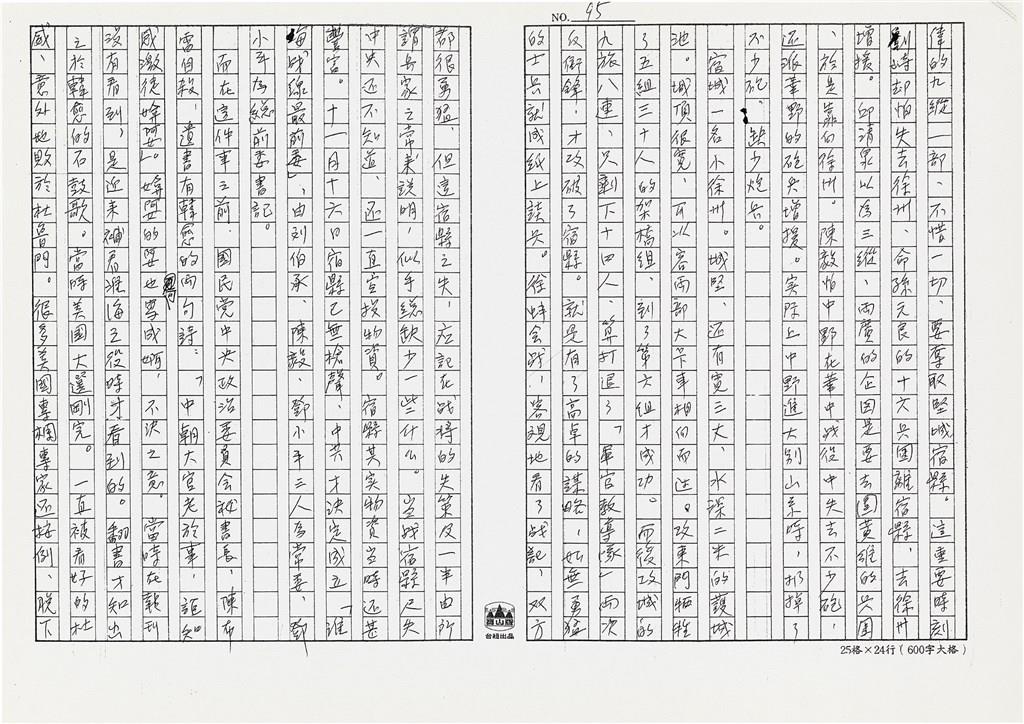 NO. 95
偉的九縱一部、不惜一切、要奪取堅城宿縣。這重要時刻
劉峙却怕失去徐州、命孫元良的十六兵團離宿縣、去徐州
增援。邱清泉以為三縱、兩廣的企図是要去圍黃維的兵團
、於是靠向徐州。陳毅怕中野在華中战役中失去不少砲、
还派華野的砲兵增援。实际上中野進大别山系時、扔掉了
不少砲、缺少炮兵。
宿城一名小徐州。城堅、还有寬三丈、水深二米的護城
池。城頂很寬、可以容兩部大卡車相向而过。攻東門牺牲
了五組三十人的架橋組、到了第六組才成功。而後攻城的
九旅八連、只剩下十四人、算打退了「軍官教導隊」兩次
反衝鋒、才攻破了宿縣。就是有了高卓的謀略、如無勇猛
的士兵就成紙上談兵。徐蚌会战、客观地看了战記、双方
都很勇猛、但這宿縣之失、应記在战将的失策及一半由所
謂兵家之常来説明、似乎総缺少一些什么。当战宿縣已失
中央还不知道、还一直宣投物資。宿縣其实物資当時还甚
豐富。十一月十六日宿縣已無槍聲、中共才決定成立「淮
海战線最前委」、由刘伯承、陳毅、鄧小平三人為常委、鄧
小平為総前委書記。
而在這件事之前、國民党中央政治委員会秘書長、陳布
雷自殺、遺書有韓愈的兩句詩：「中朝大官老於事、詎知
感激徒媕婀」。媕婀的婀也寫成娿、不決之意。當時在報刊
沒有看到、是近来補看淮海之役時才看到的。翻書才知出
之於韓愈的石鼓歌。當時美國大選剛完。一直被看好的杜
威、意外地敗於杜魯門。很多美國專欄專家还按例、脱下
台紙出品
25格×24行（600字大格）